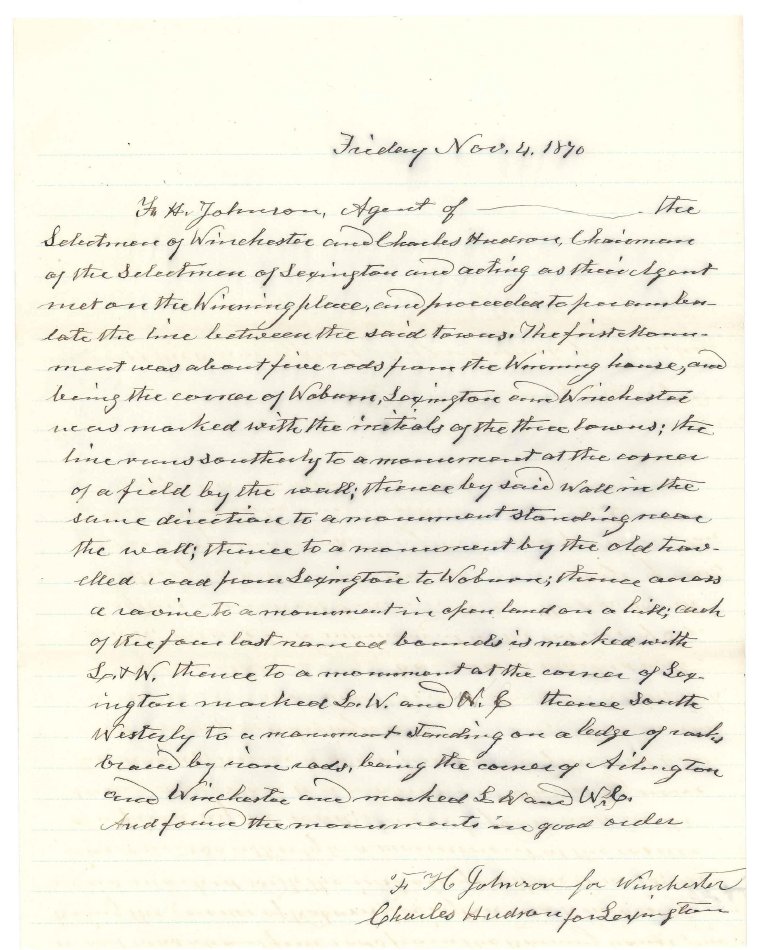 Friday Nov. 4. 1870
F. H. Johnson, Agent of the
Selectmen of Winchester and Charles Hudson, Chairman
of the Selectmen of Lexington and acting as their Agent
met on the Winning place, and proceeded to perambu-
late the line between the said towns. The first Monu-
ment was about five rods from the Winning house, and
being the corner of Woburn, Lexington and Winchester
was marked with the initials of the three towns; the
line runs southerly to a monument at the corner
of a field by the wall; thence by said Wall in the
same direction to a monument standing near
the wall; thence to a monument by the old trav-
elled road from Lexington to Woburn; thence across
a ravine to a monument in open land on a hill; each
of the four last named bounds is marked with
L. & W. thence to a monument at the corner of Lex-
ington marked L. W. and W. C thence South
Westerly to a monument standing on a ledge of rocks
braced by iron rods, being the corner of Arlington
and Winchester and marked L W and W. C.
And found the monuments in good order
F H Johnson for Winchester
Charles Hudson for Lexington